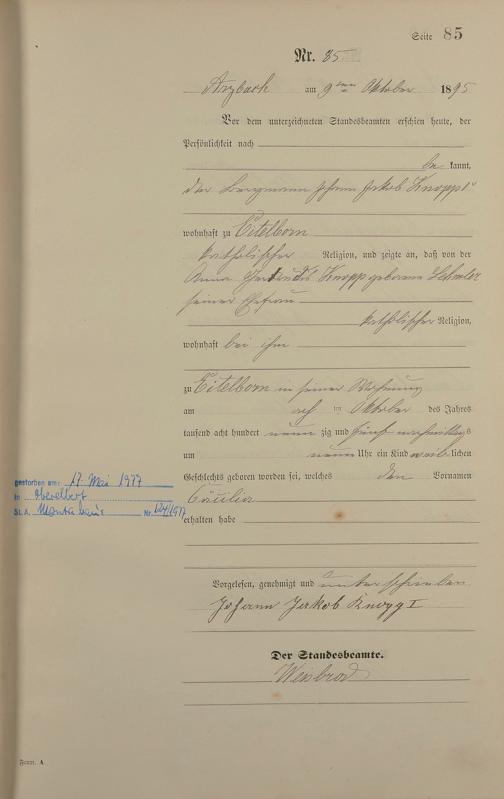 Seite 85
Nr. 85
Arzbach am 9ten Oktober 1895
Vor dem unterzeichneten Standesbeamten erschien heute, der
Persönlichkeit nach
be kannt,
der Bergmann Johann Jakob Knopp I
wohnhaft zu Eitelborn
katholischer Religion, und zeigte an, daß von der
Anna Gertrudis Knopp geborene
seiner Ehefrau
katholischer Religion,
wohnhaft bei ihm
zu Eitelborn in seiner Wohnung
am ach ten Oktober des Jahres
tausend acht hundert neun zig und fünf nachmittags
um neun Uhr ein Kind weib lichen
Geschlechts geboren worden sei, welches den Vornamen
Cäcilia
erhalten habe
gestorben am: 17. Mai 1977
in Oberelbert
St. A. Montabaur Nr. /1977
Vorgelesen, genehmigt und unterschrieben
Johann Jakob Knopp I
Der Standesbeamte.
Weisbrod
Form. A